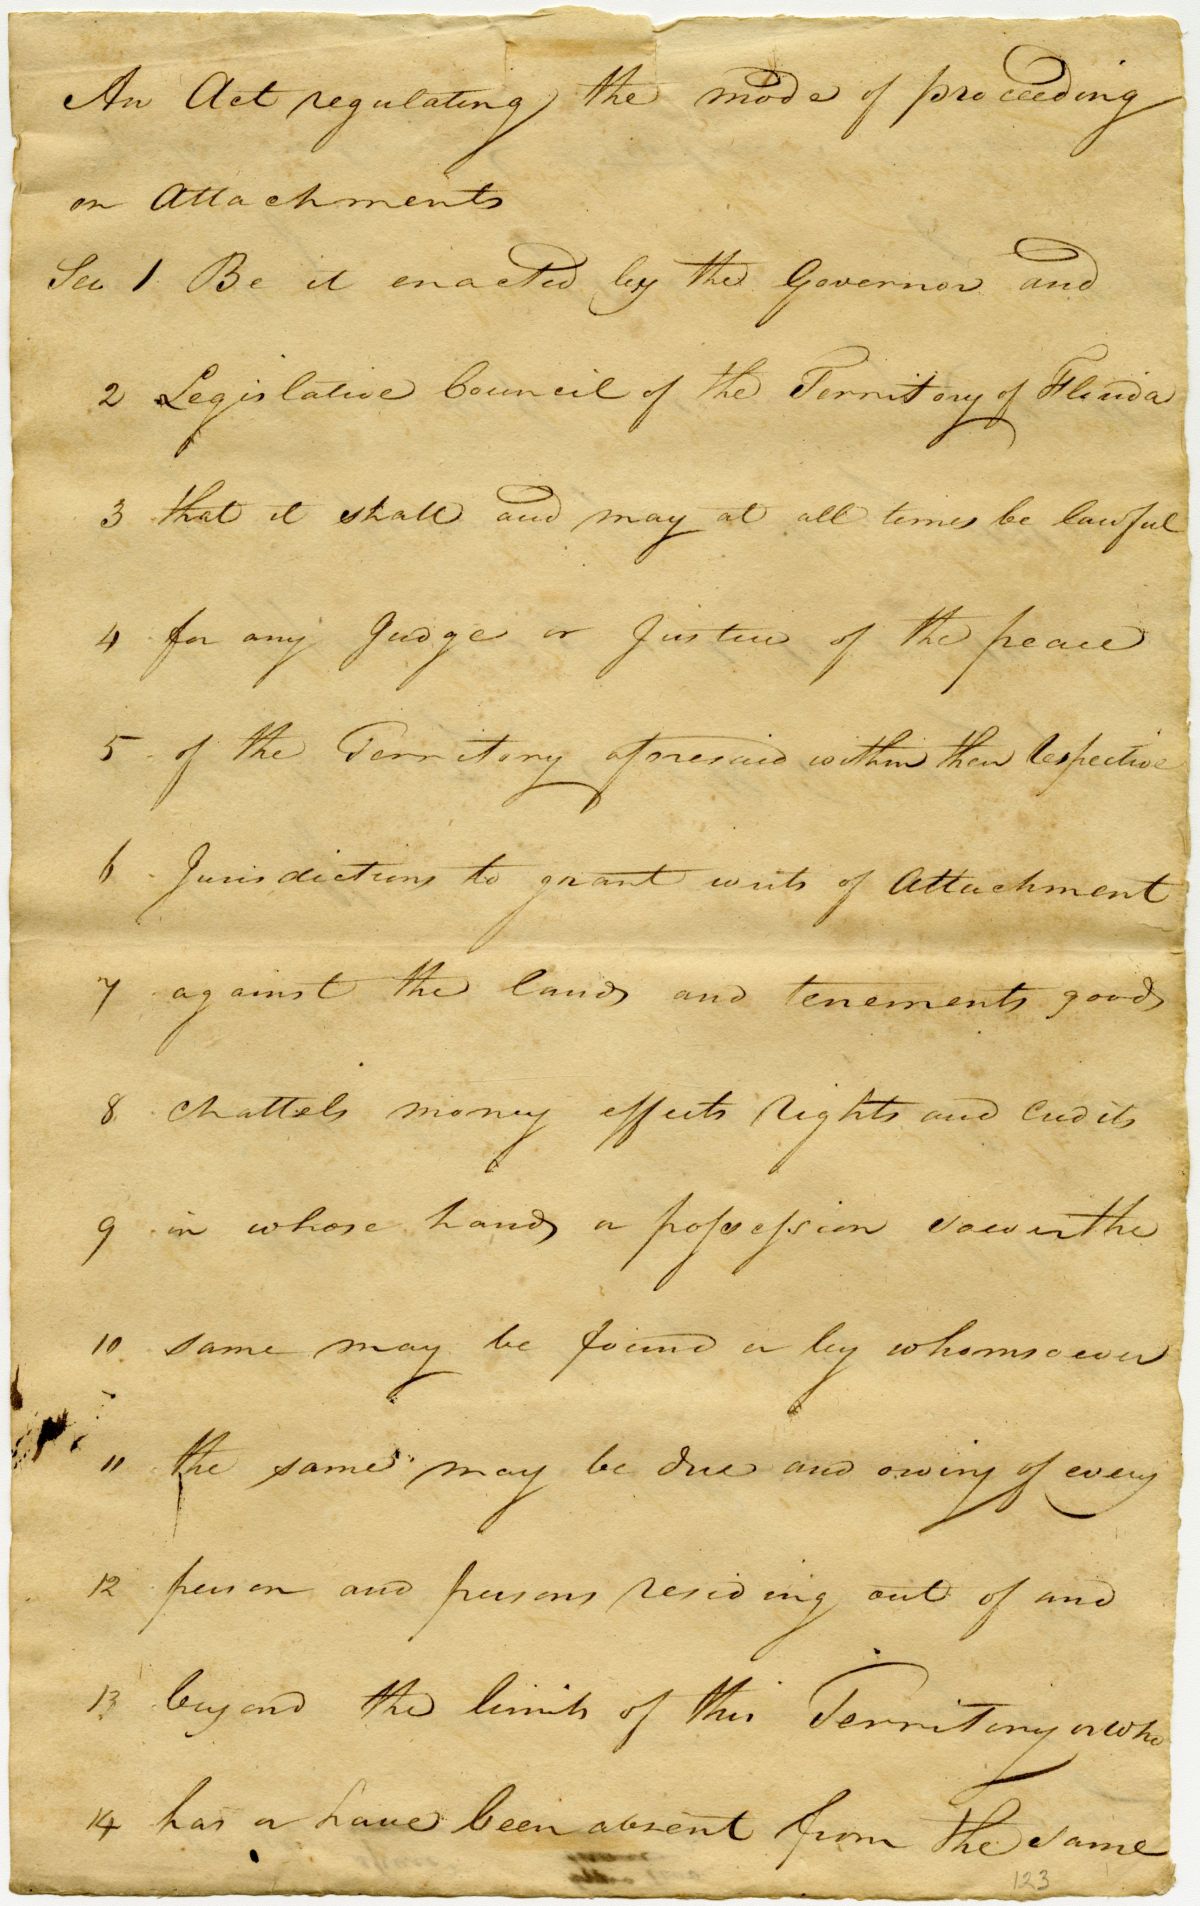 An Act regulating the mode of proceeding
on Attachments
Sec 1 Be it enacted by the Governor and
2 Legislative Council of the Territory of Florida
3 that it shall and may at all times be lawful
4 for any Judge or Justice of the peace
5 of the Territory aforesaid within their respective
6 Jurisdictions to grant writs of Attachment
7 against the lands and tenements goods
8 chattels money effects rights and credits
9 in whose hands or possession soever the
10 same may be found or by whomsoever
11 the same may be due and owing of every
12 person and persons residing out of and
13 beyond the limits of this Territory or who
14 has or have been absent from the same
123